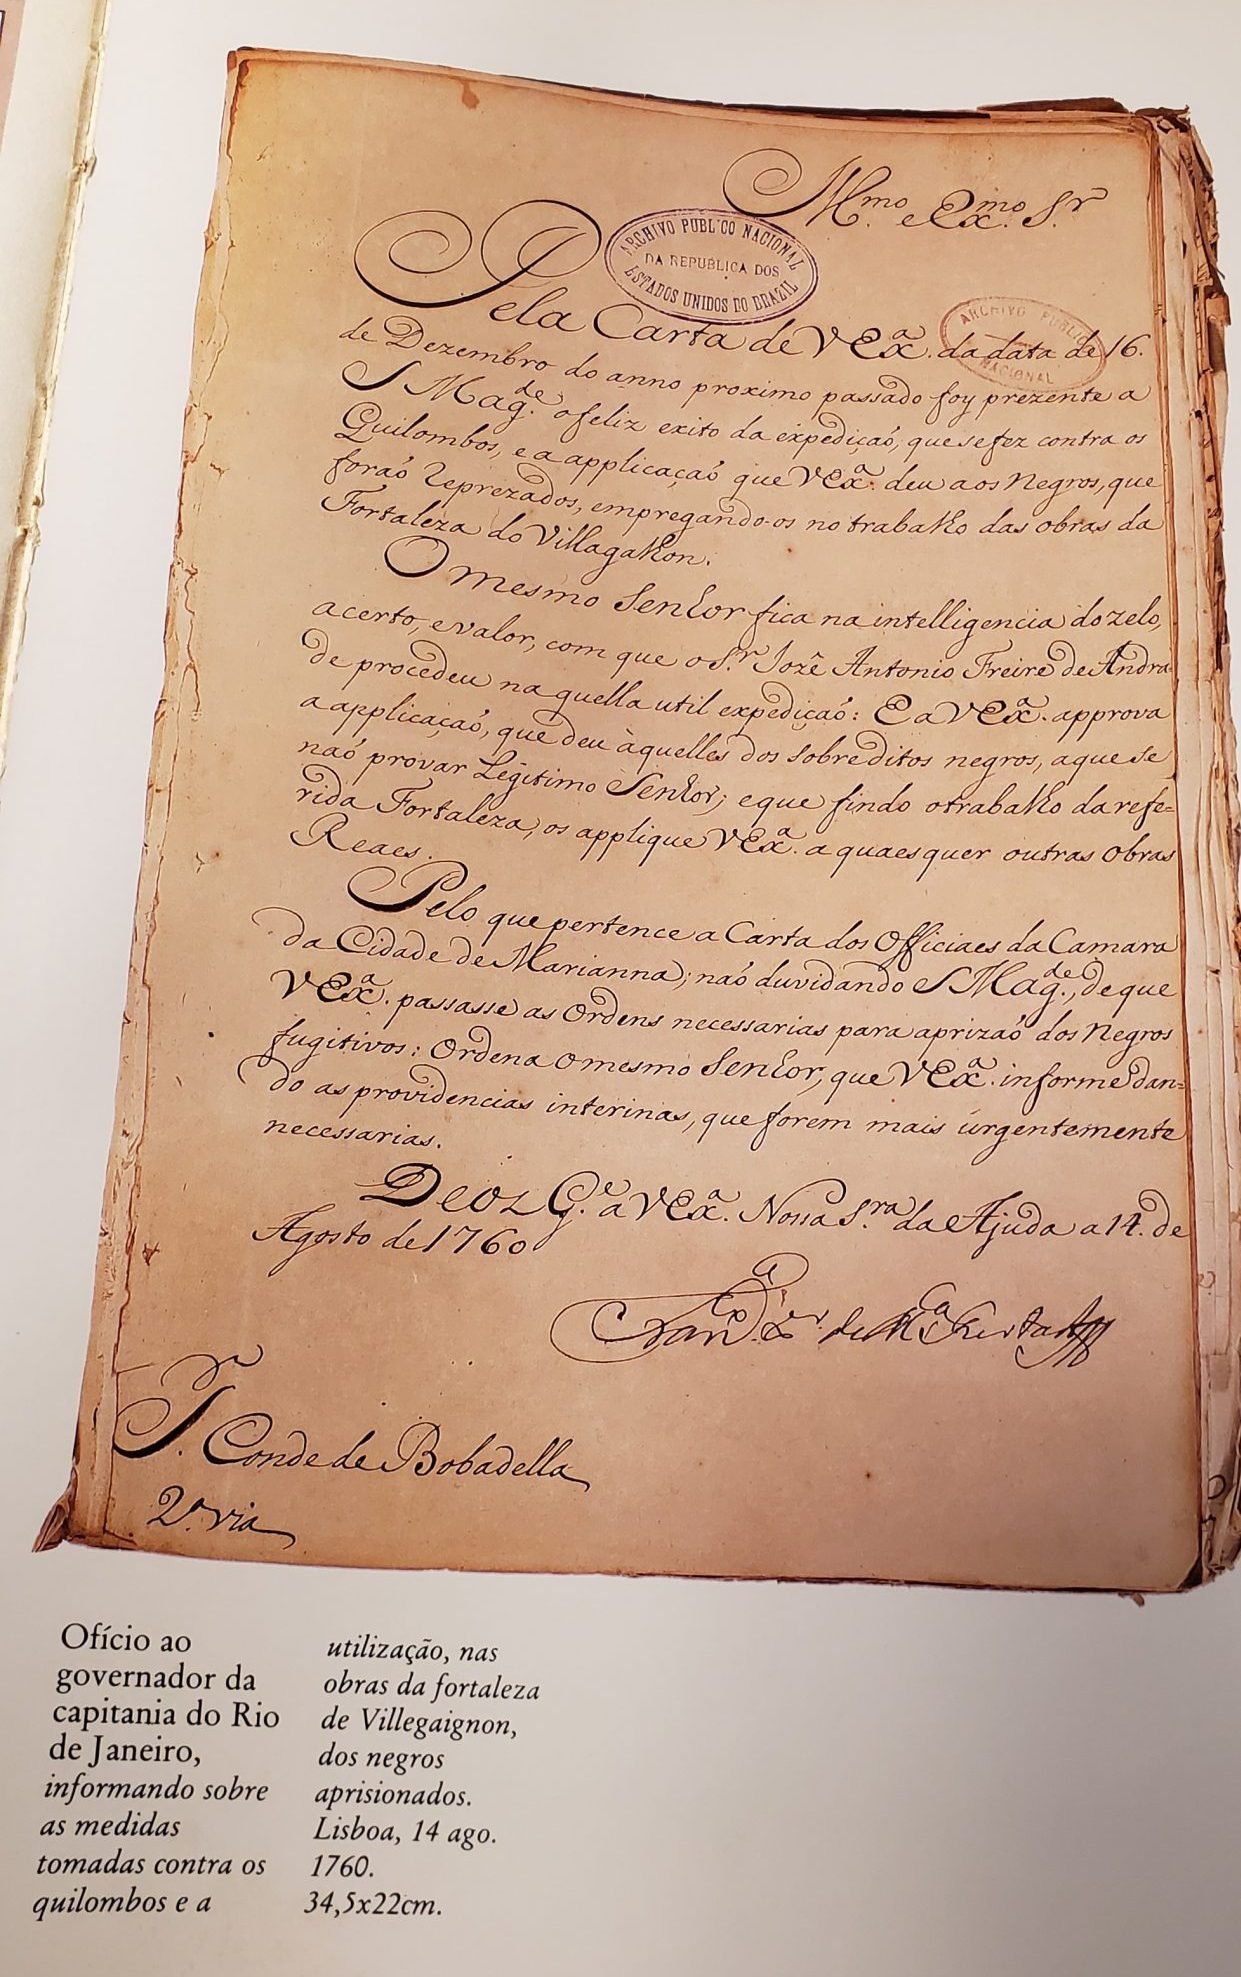 Illmo. e Exmo. Sr
ARCHIVO PUBLICO NACIONAL
DA REPUBLICA DOS
ESTADOS UNIDOS DO BRAZIL
ARCHIVO PUBLICO
NACIONAL
Pela Carta de VExa. da data de 16.
de Dezembro do anno proximo passado foy prezente a
S Magde. o feliz exito da expediçaó, que se fez contra os
Quilombos, e a applicaçaó que VExa. deu aos Negros, que
foraó reprezados, empregando-os no trabalho das obras da
Fortaleza do Villagalhon.
O mesmo Senhor fica na intelligencia do zelo,
acerto, e valor, com que o Sr. Jozê Antonio Freire de Andra
de procedeu naquella util expediçaó: E a VExa. approva
a applicaçaó, que deu àquelles dos sobreditos negros, a que se
naó provar Legitimo Senhor; e que findo o trabalho da refe=
rida Fortaleza, os applique VExa. a quaesquer outras obras
Reaes.
Pelo que pertence a Carta dos Officiaes da Camara
da Cidade de Marianna; naó duvidando S Magde., de que
VExa. passasse as Ordens necessarias para aprizaó dos Negros
fugitivos: Ordena o mesmo Senhor, que VExa. informe dan=
do as providencias interinas, que forem mais urgentemente
necessarias.
Deos Ge. a VExa. Nossa Sra. da Ajuda a 14. de
Agosto de 1760
Conde de Bobadella
2a. via
Ofício ao
governador da
capitania do Rio
de Janeiro,
informando sobre
as medidas
tomadas contra os
quilombos e a
utilização, nas
obras da fortaleza
de Villegaignon,
dos negros
aprisionados.
Lisboa, 14 ago.
1760.
34,5x22cm.